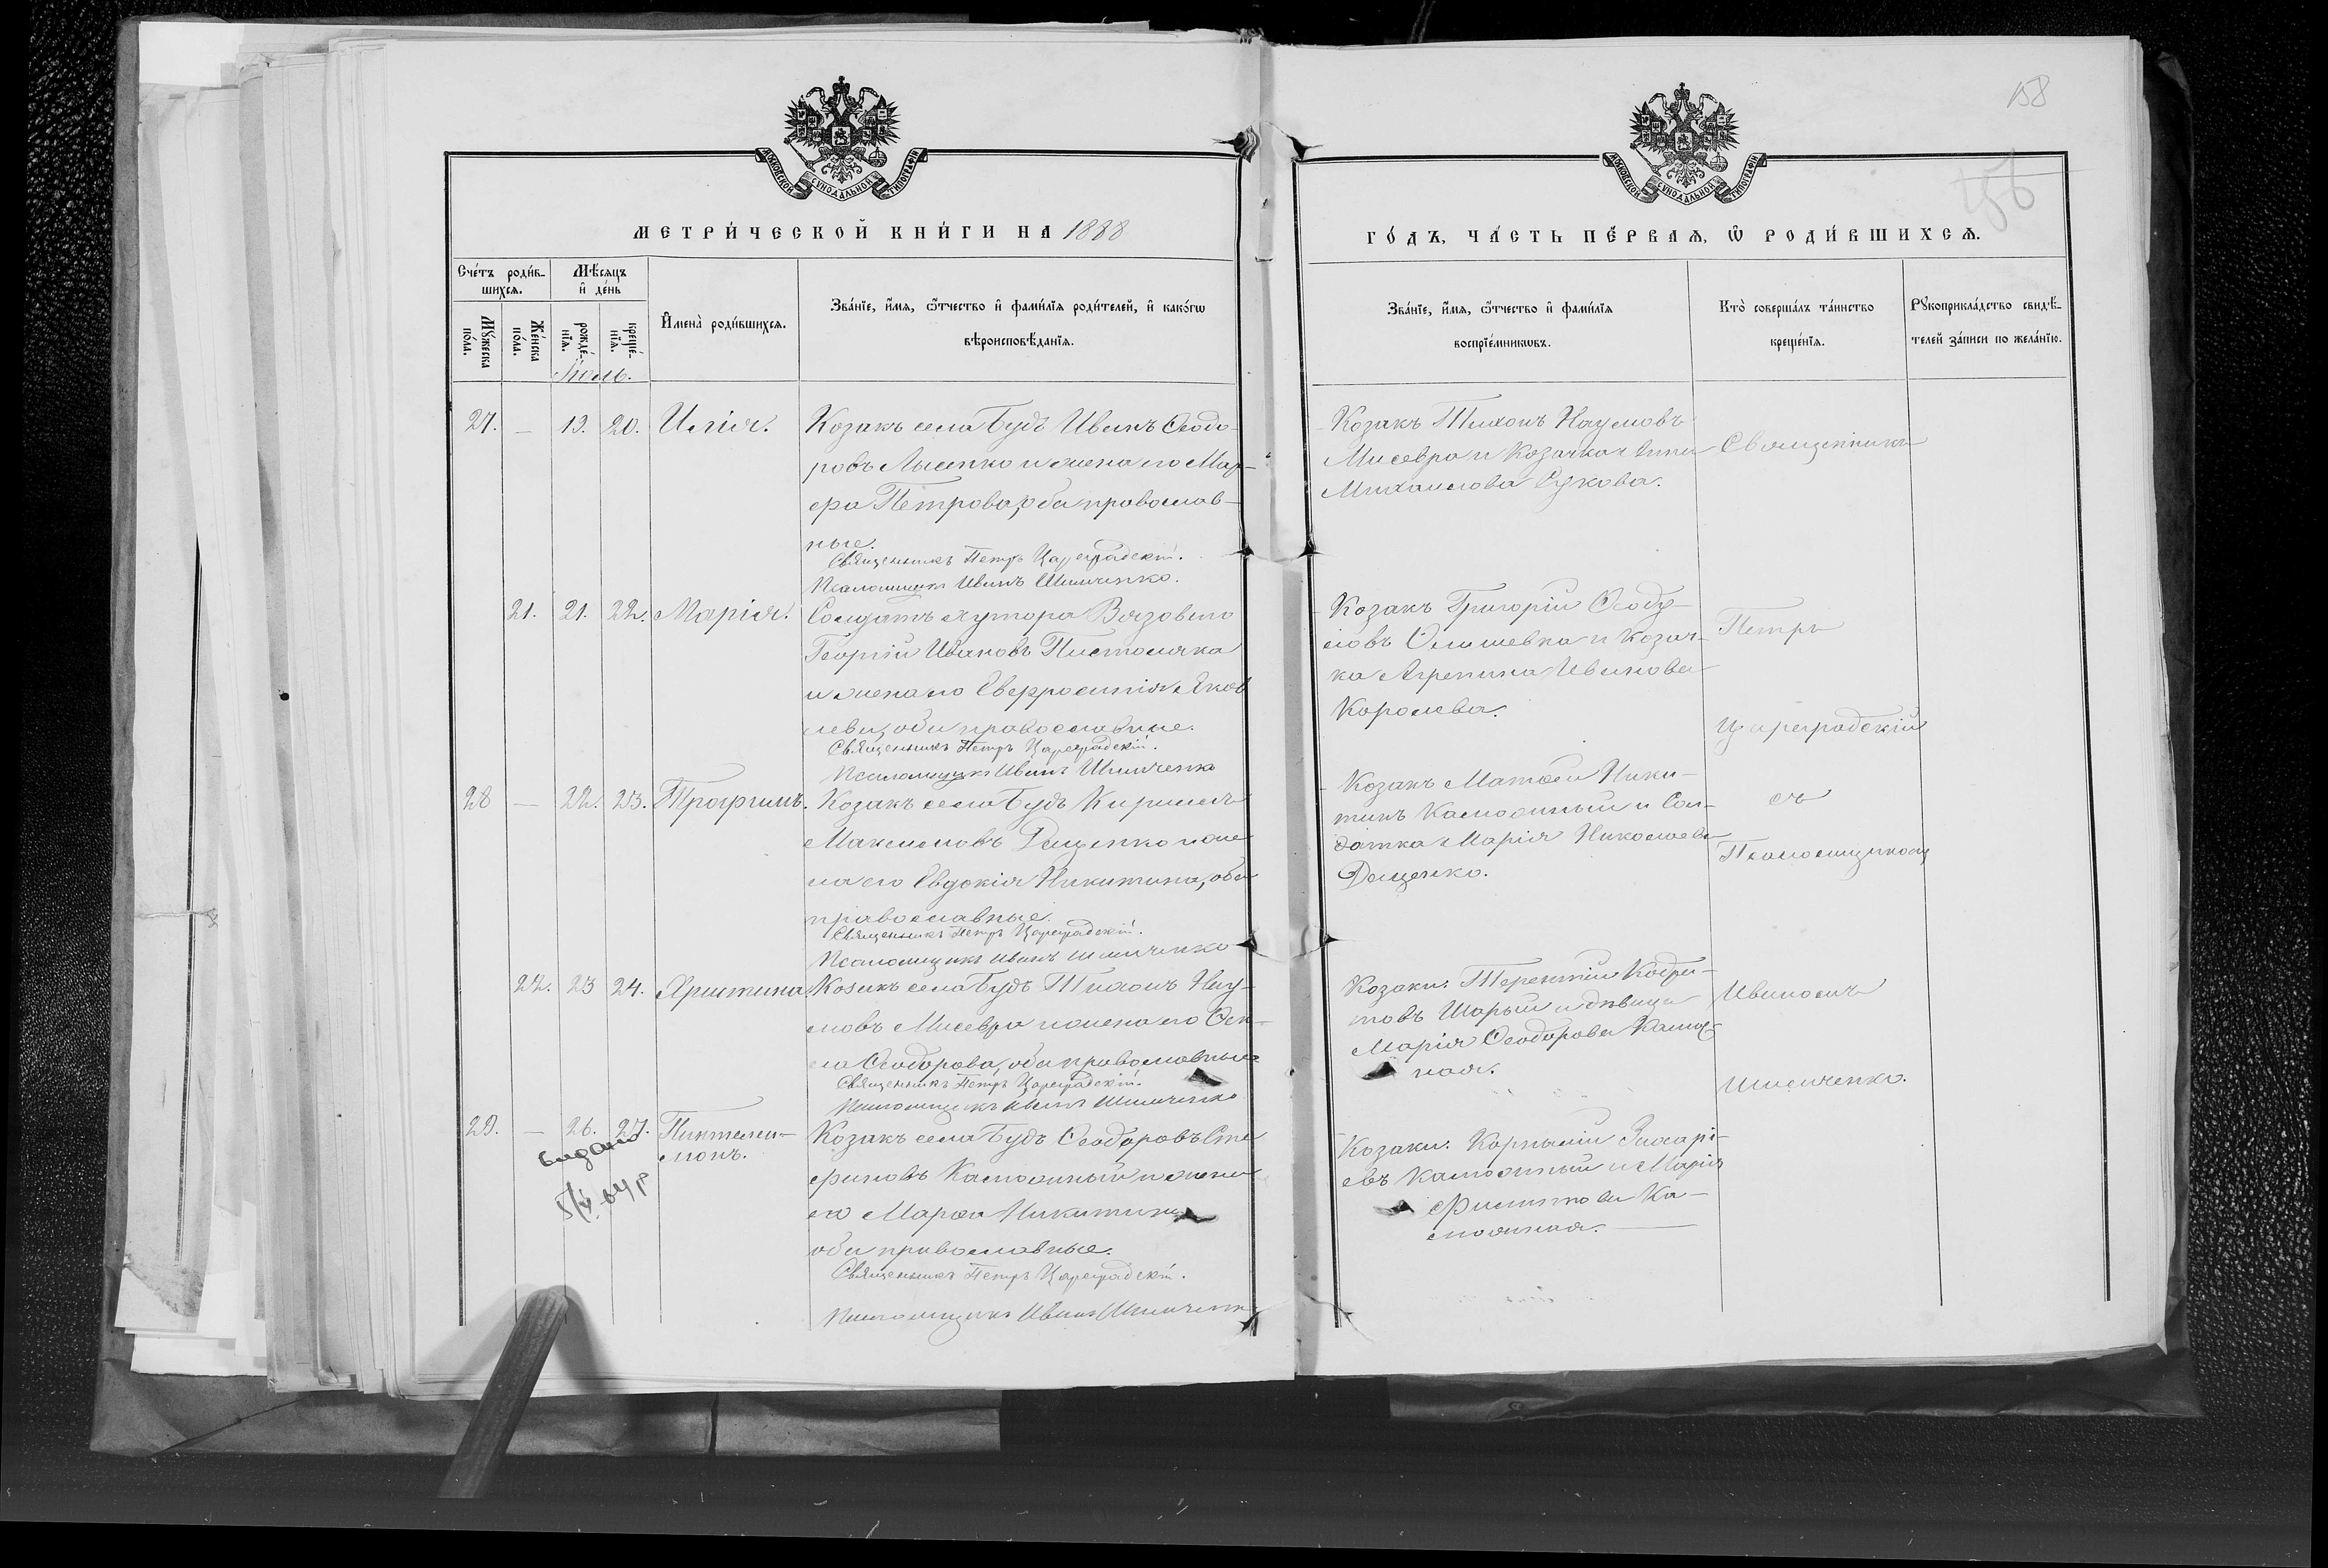 158
156
МОСКОВСКОЙ СѴНОДАЛЬНОЙ ТИПОГРАФІИ
МОСКОВСКОЙ СѴНОДАЛЬНОЙ ТИПОГРАФІИ
МЕТРИ́ЧЕСКОЙ КНИ́ГИ НА 1888
ГО́ДЪ, ЧА́СТЬ ПЕ́РВАѦ, Ѽ РОДИ́ВШИХСѦ.
Сче́тъ роди́в-
шихсѧ.
Мѣ́сѧцъ
и҆ де́нь
Мꙋ́жеска
по́ла.
Же́нска
по́ла.
рожде́-
нїѧ.
креще́-
нїѧ.
И҆мена̀ роди́вшихсѧ.
Зва́нїе, и҆́мѧ, ѻ҆́тчество и҆ фами́лїѧ роди́телей, и҆ како́гѡ
вѣроисповѣ́данїѧ.
Зва́нїе, и҆́мѧ, ѻ҆́тчество и҆ фами́лїѧ
воспрїе́мникѡвъ.
Кто̀ соверша́лъ та́инство
креще́нїѧ.
Рꙋкоприкла́дство свидѣ́-
телей за́писи по жела́нїю.
Іюль.
27. — 19. 20. Илія.
Козакъ села Будъ Иванъ Ѳеодо-
ровъ Лысенко и жена его Мар-
фа Петрова, оба православ-
ные.
Священникъ Петръ Цареградскій.
Псаломщикъ Иванъ Шимченко.
Козакъ Тихонъ Наумовъ
Мисевра и Козачка Анна
Михаилова Сукова.
Священникъ
21. 21. 22. Марія.
Солдатъ хутора Вязоваго
Георгій Ивановъ Пистоляка
и жена его Евфросинія Яков
лева, оба православные.
Священникъ Петръ Цареградскій.
Псаломщикъ Иванъ Шимченко
Козакъ Григорій Ѳеоду-
ловъ Олишевка и Козач-
ка Агрепина Иванова
Королева.
Петръ
Цареградскій
28 — 22. 23. Трофимъ.
Козакъ села Будъ Кирилъ
Максимовъ Дащенко и же
на его Евдокія Никитина, оба
православные.
Священникъ Петръ Цареградскій.
Псаломщикъ Иванъ Шимченко
Козакъ Матѳей Ники-
тинъ Калюжный и Сол-
датка Марія Николаева
Дащенко.
съ
Псаломщикомъ
22. 23 24. Христина.
Козакъ села Будъ Тихонъ Нау-
мовъ Мисевра и жена его
Ѳеодорова, оба православные
Священникъ Петръ Цареградскій.
Псаломщикъ Иванъ Шимченко
Козаки: Терентій Кодра-
товъ Шарый и дѣвица
Марія Ѳеодорова Калюж
ная.
Иваномъ
Шимченко.
29. — 26. 27. Пантелеи-
монъ.
видано
Козакъ села Будъ Ѳеодоровъ Сте
фановъ Калюжный и жена
его Марѳа Никитина
оба православные.
Священникъ Петръ Цареградскій.
Псаломщикъ Иванъ Шимченко
Козаки: Корнилій Захарі-
евъ Калюжный и Марія
Филипова Ка-
люжная.